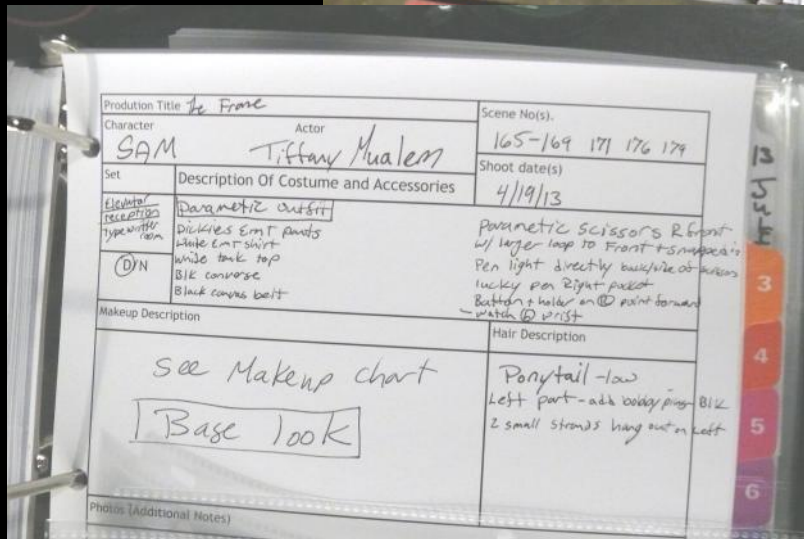 Prodution Title The Frame
Scene No(s).
165-169 171 176 179
Character
SAM
Actor
Tiffany Mualem
Shoot date(s)
4/19/13
Set
Elevator
reception
typewriter
room
D/N
Description Of Costume and Accessories
Parametic outfit
Dickies Emt pants
white Emt shirt
White tank top
Blk converse
Black canvas belt
Parametic Scissors R front
w/ larger loop to Front +
Pen light directly
lucky pen Right pocket
Button + holder on point forward
watch wrist
Makeup Description
See Makeup chart
1 Base look
Hair Description
Ponytail - low
Left part - add bobby pins Blk
2 small strands hang out on Left
Photos (Additional Notes)
13
3
4
5
6